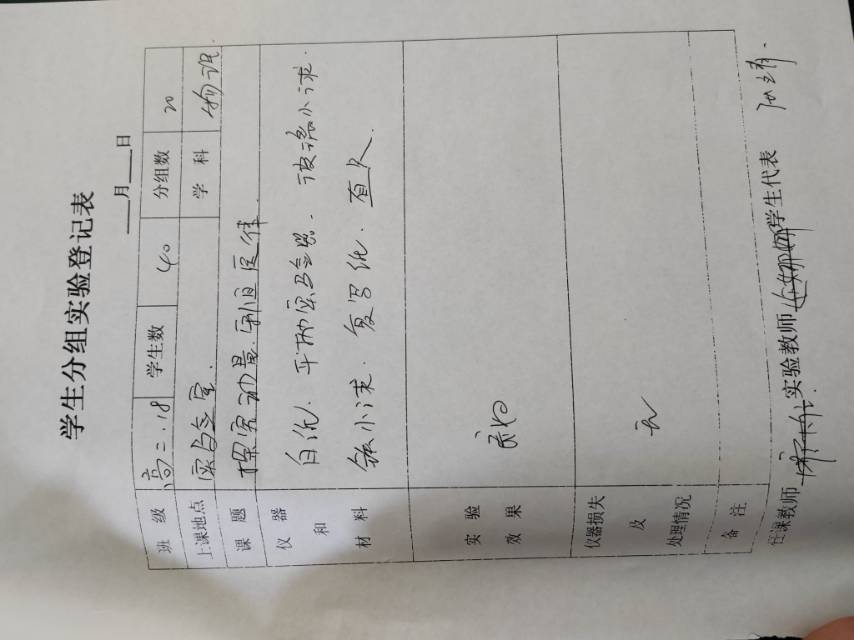 学生分组实验登记表
___月___日
班级 高二.18 学生数 40 分组数 20
上课地点 实验室. 学科 物理
课题 探究动量守恒定律.
仪器和材料 白纸. 平抛实验器. 玻璃小球.
钢小球. 复写纸. 直尺.
实验效果 良好
仪器损失及处理情况 无
备注
任课教师 实验教师 学生代表